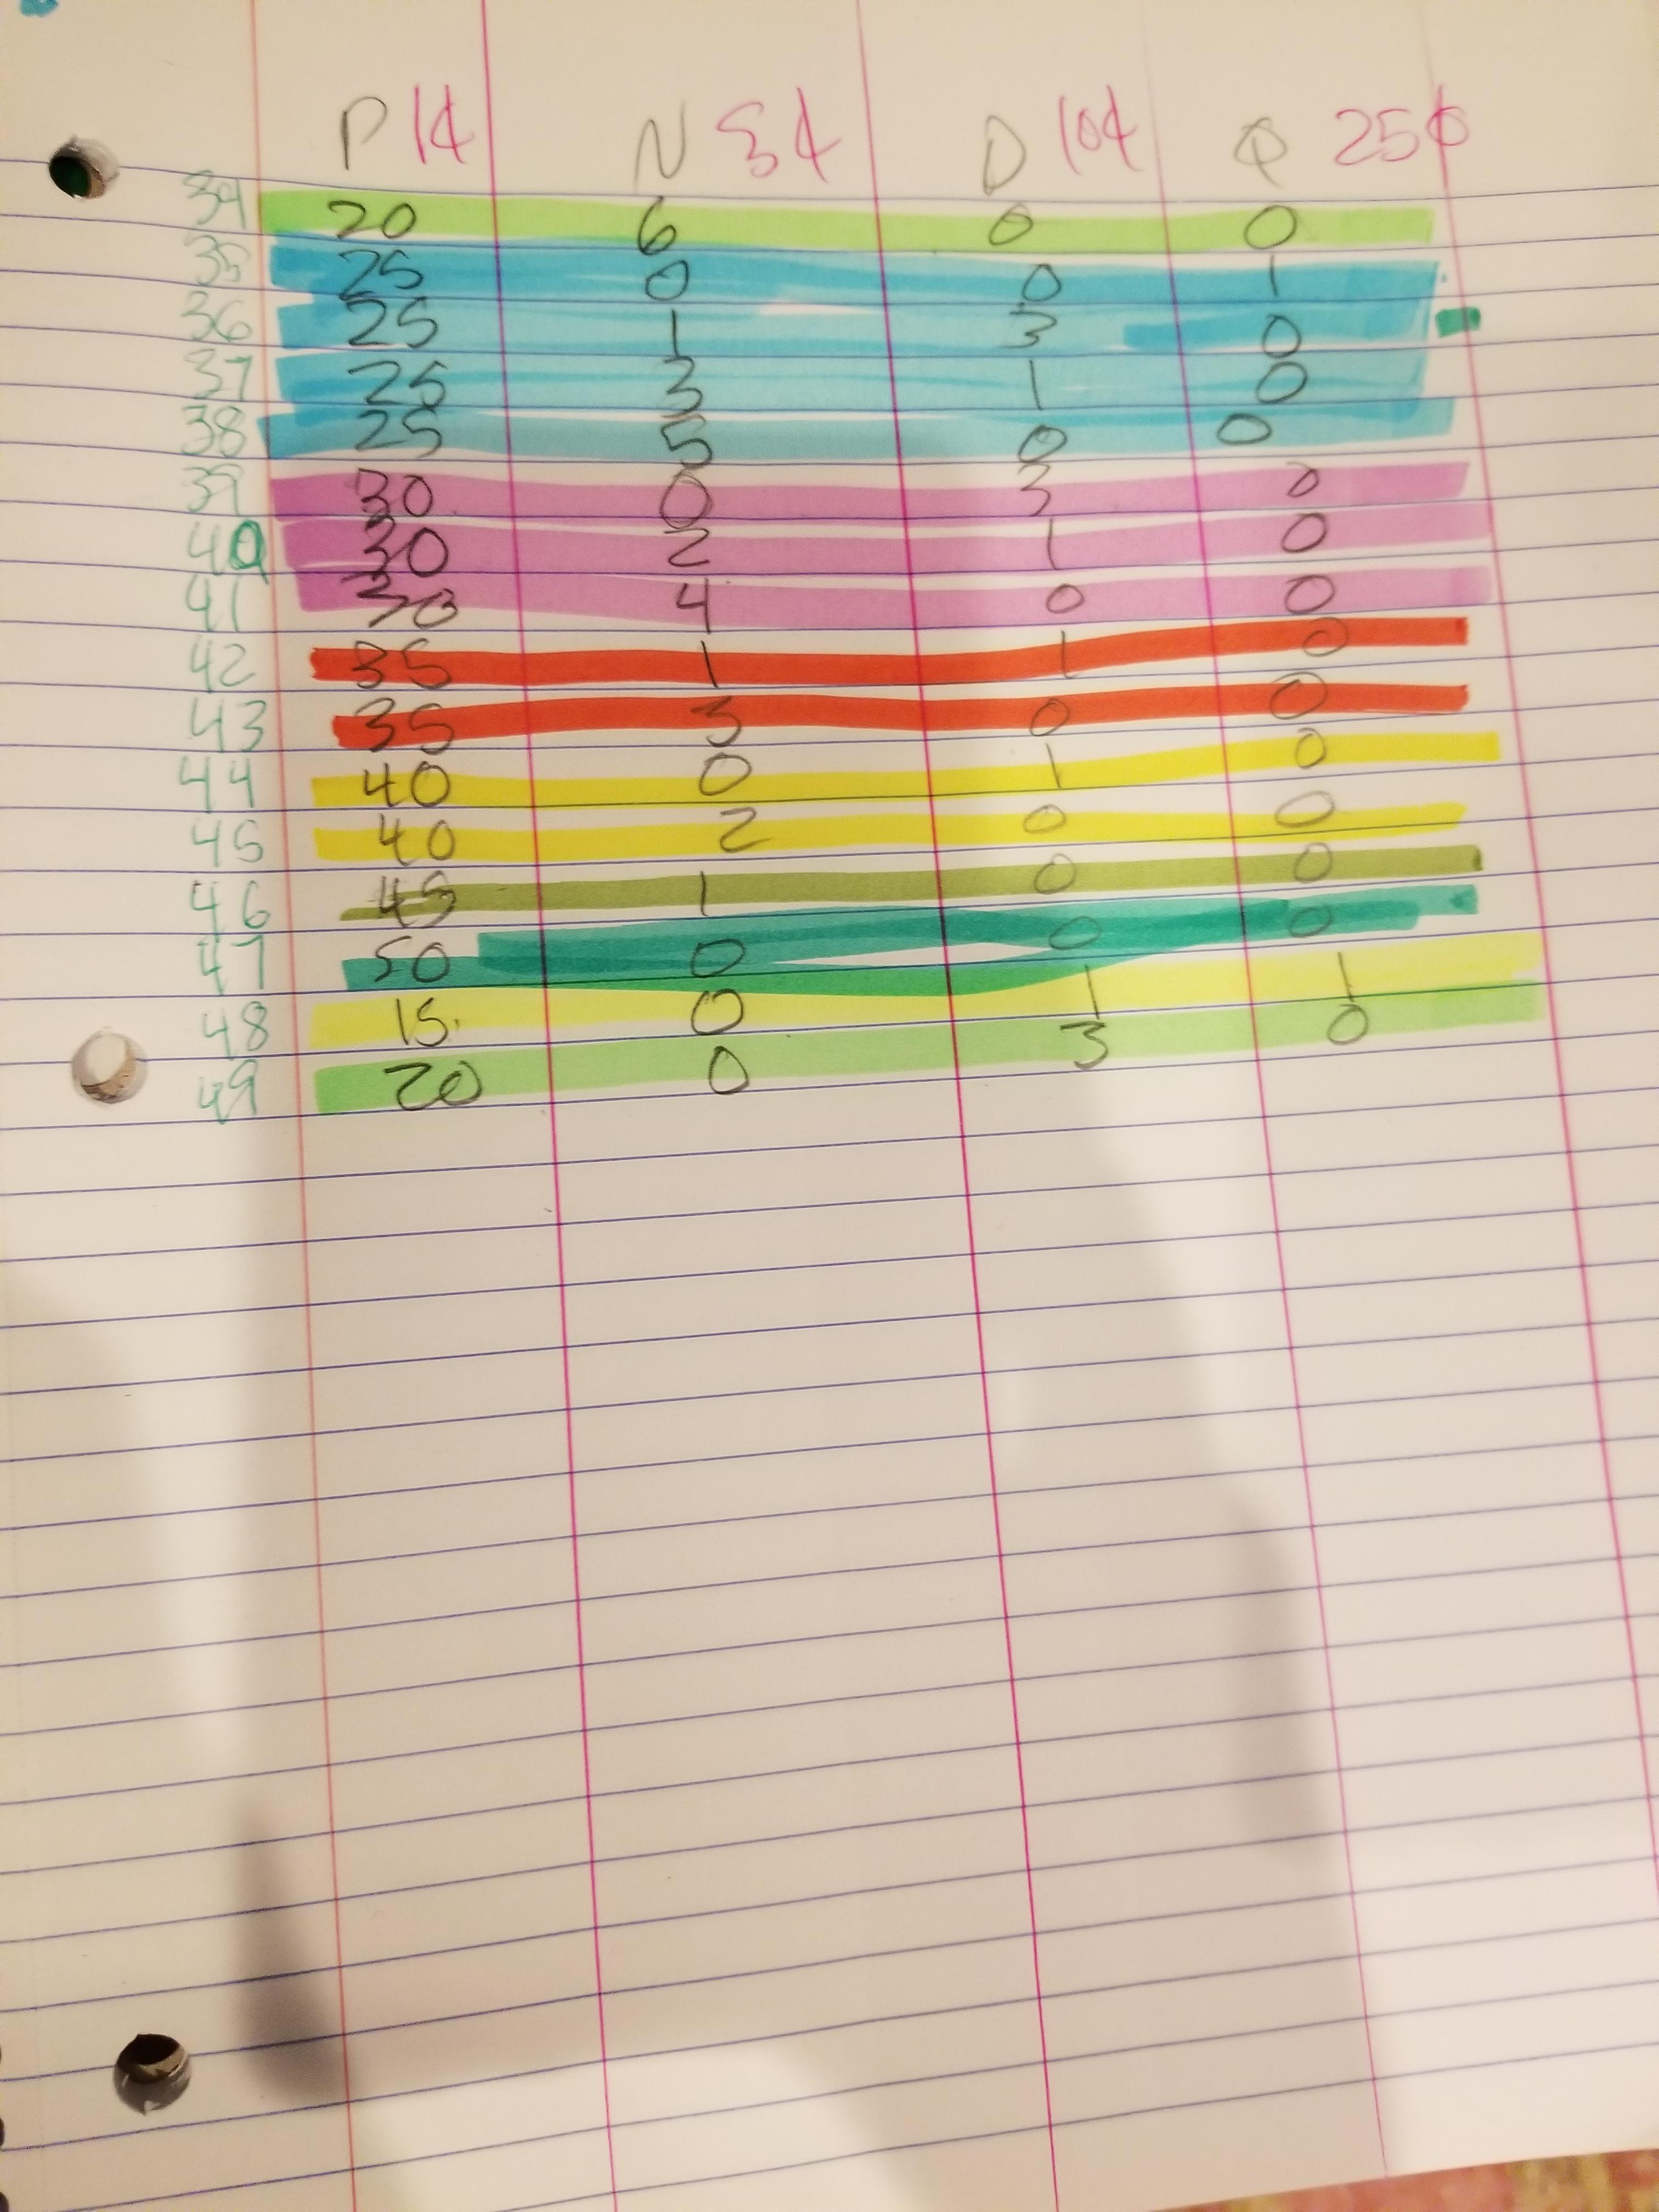 P 1¢ N 5¢ D 10¢ Q 25¢
34 20 6 0 0
35 25 0 0 1
36 25 1 3 0
37 25 3 1 0
38 25 5 0 0
39 30 0 3 0
40 30 2 1 0
41 30 4 0 0
42 35 1 1 0
43 35 3 0 0
44 40 0 1 0
45 40 2 0 0
46 45 1 0 0
47 50 0 0 0
48 15 0 1 1
49 20 0 3 0